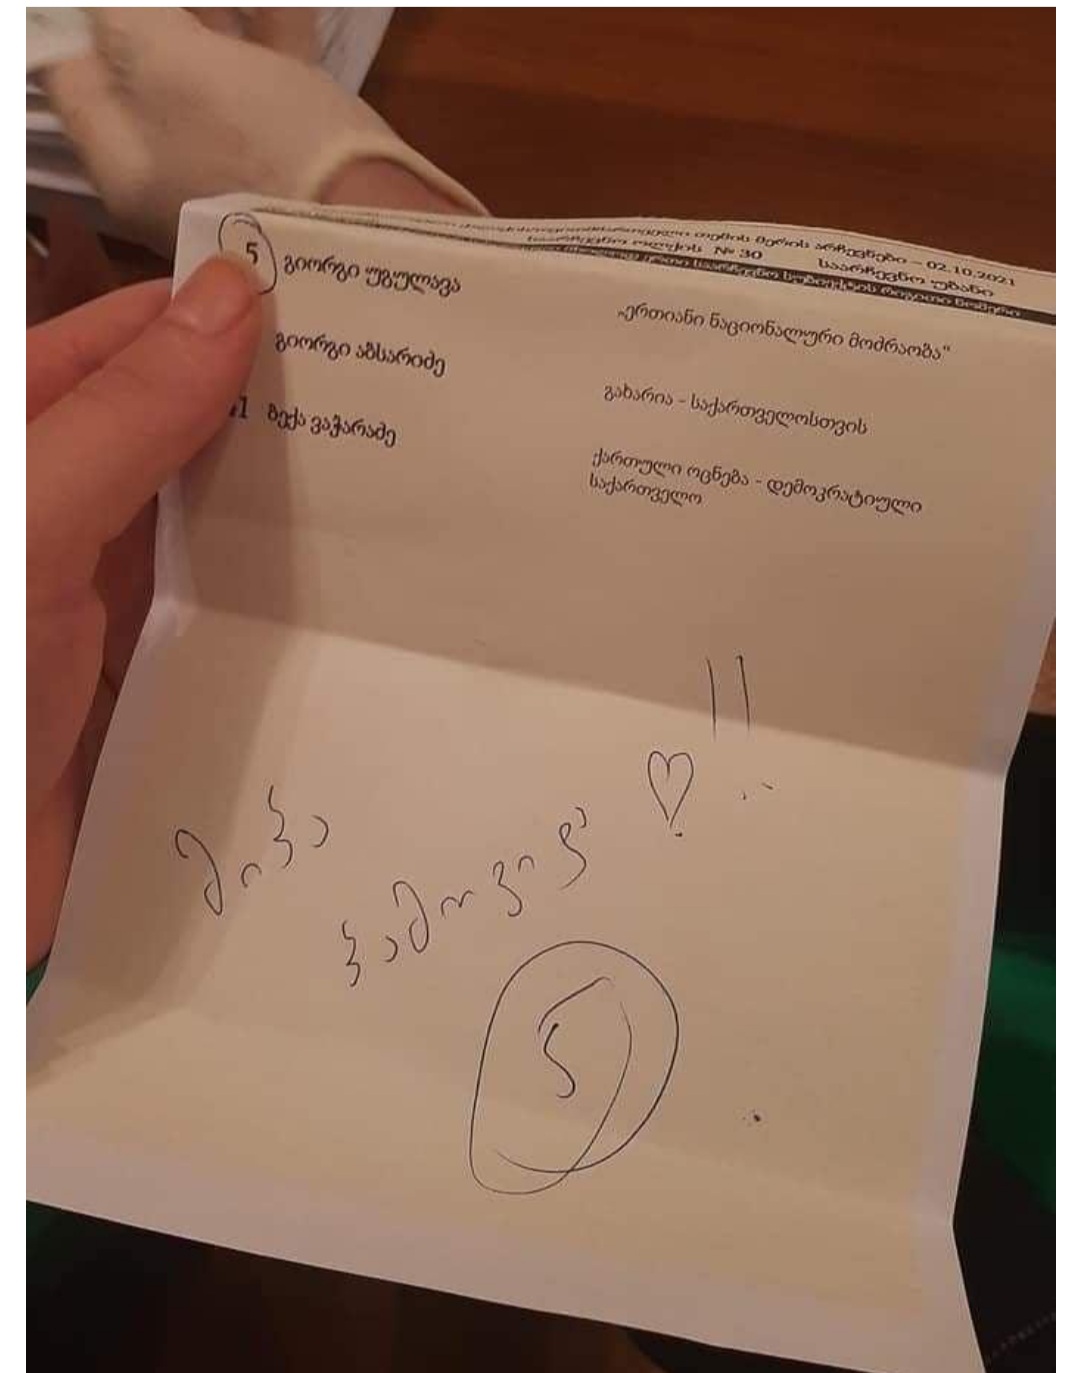 თემის მერის არჩევნები – 02.10.2021
საარჩევნო ოლქის № 30 საარჩევნო უბანი
საარჩევნო სუბიექტის რიგითი ნომერი
5 გიორგი უგულავა „ერთიანი ნაციონალური მოძრაობა“
გიორგი აბსარიძე გახარია - საქართველოსთვის
41 ბექა ვაჭარაძე ქართული ოცნება - დემოკრატიული
საქართველო
!!
მიშა
♡
5